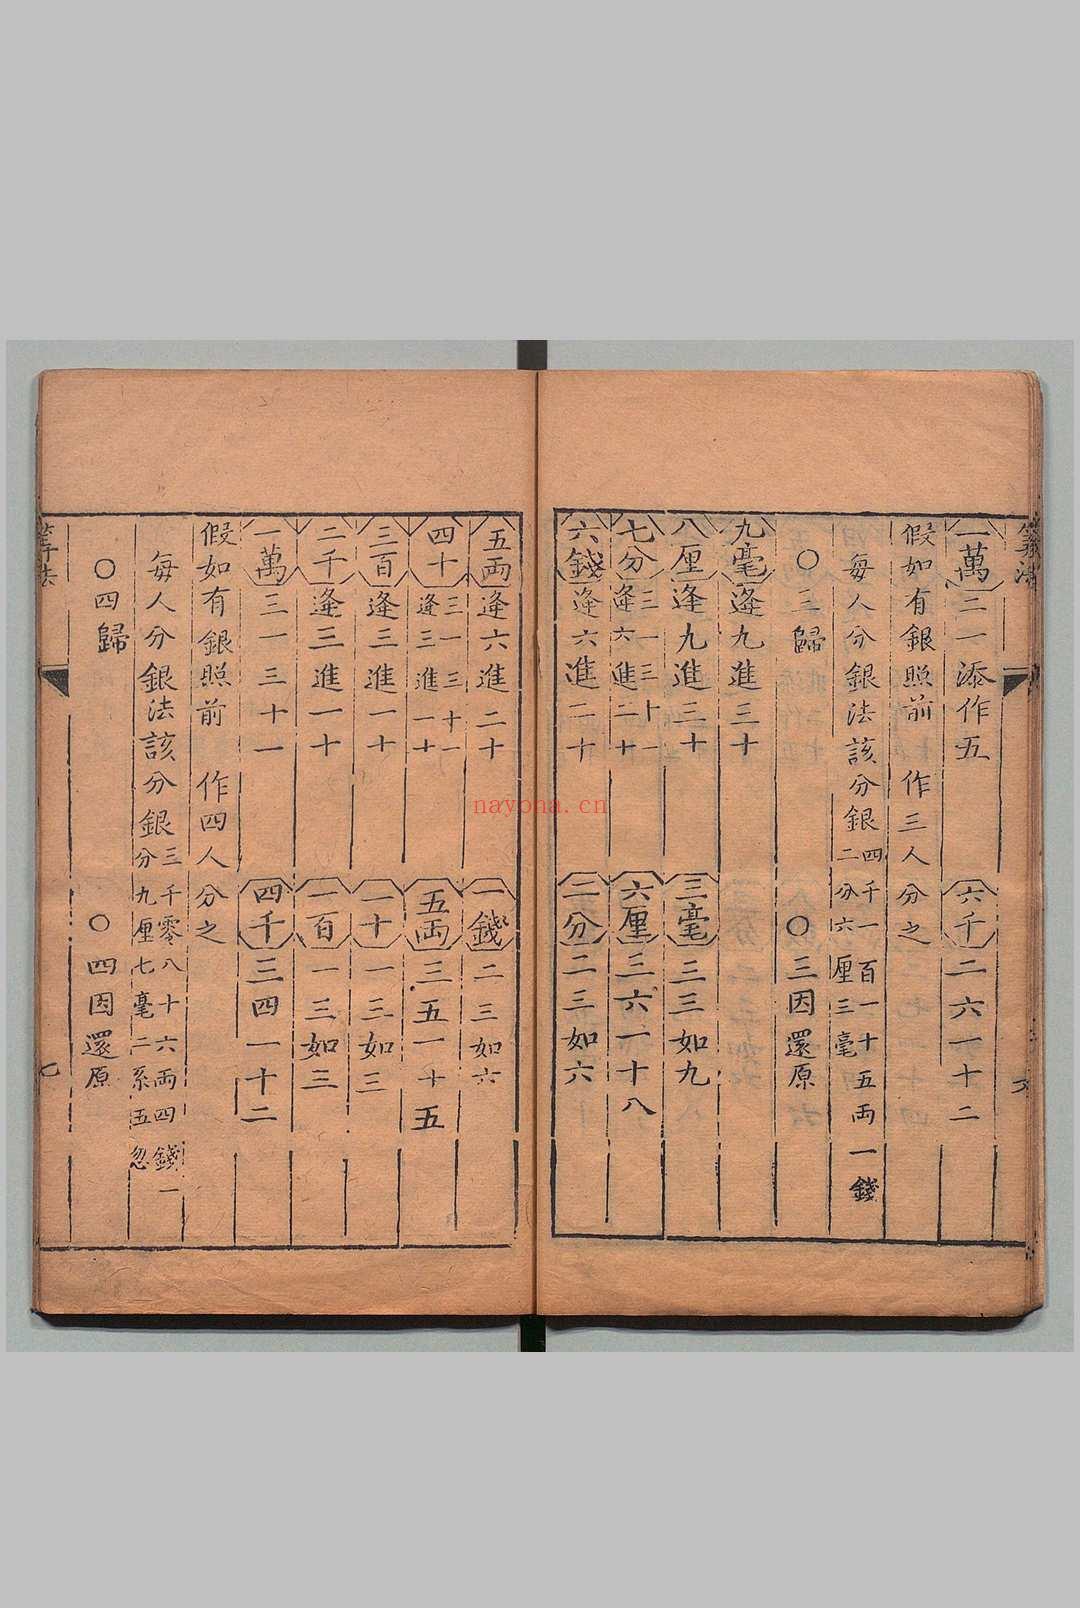 算法
一萬二一添作五
六千二六一十二
假如有銀照前 作三人分之
每人分銀法該分銀四千一百一十五兩一錢
二分六厘三毫
〇三歸
〇三因還原
九毫逢九進三十
八厘逢九進三十
三毫三三如九
七分三一三十一
逢六進二十
六厘三六一十八
六錢逢六進二十
二分二三如六
五両逢六進二十
一錢二三如六
四十三一三十一
逢三進一十
五両三五一十五
三百逢三進一十
一十一三如三
二千逢三進一十
一百一三如三
一萬三一三十一
四千三四一十二
假如有銀照前 作四人分之
每人分銀法該分銀三千零八十六両四錢一
分九厘七毫二系五忽
〇四歸
〇四因還原
算法
七
nayona.cn